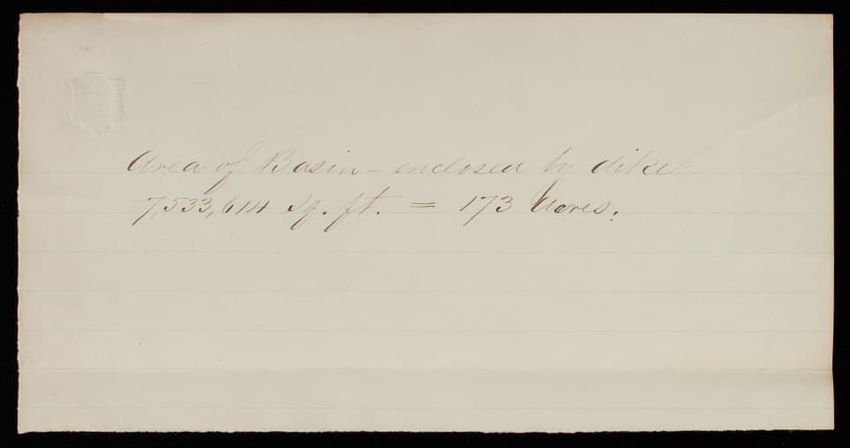 Area of Basin - enclosed by dike.
7,533,614 Sq. ft. = 173 Acres.